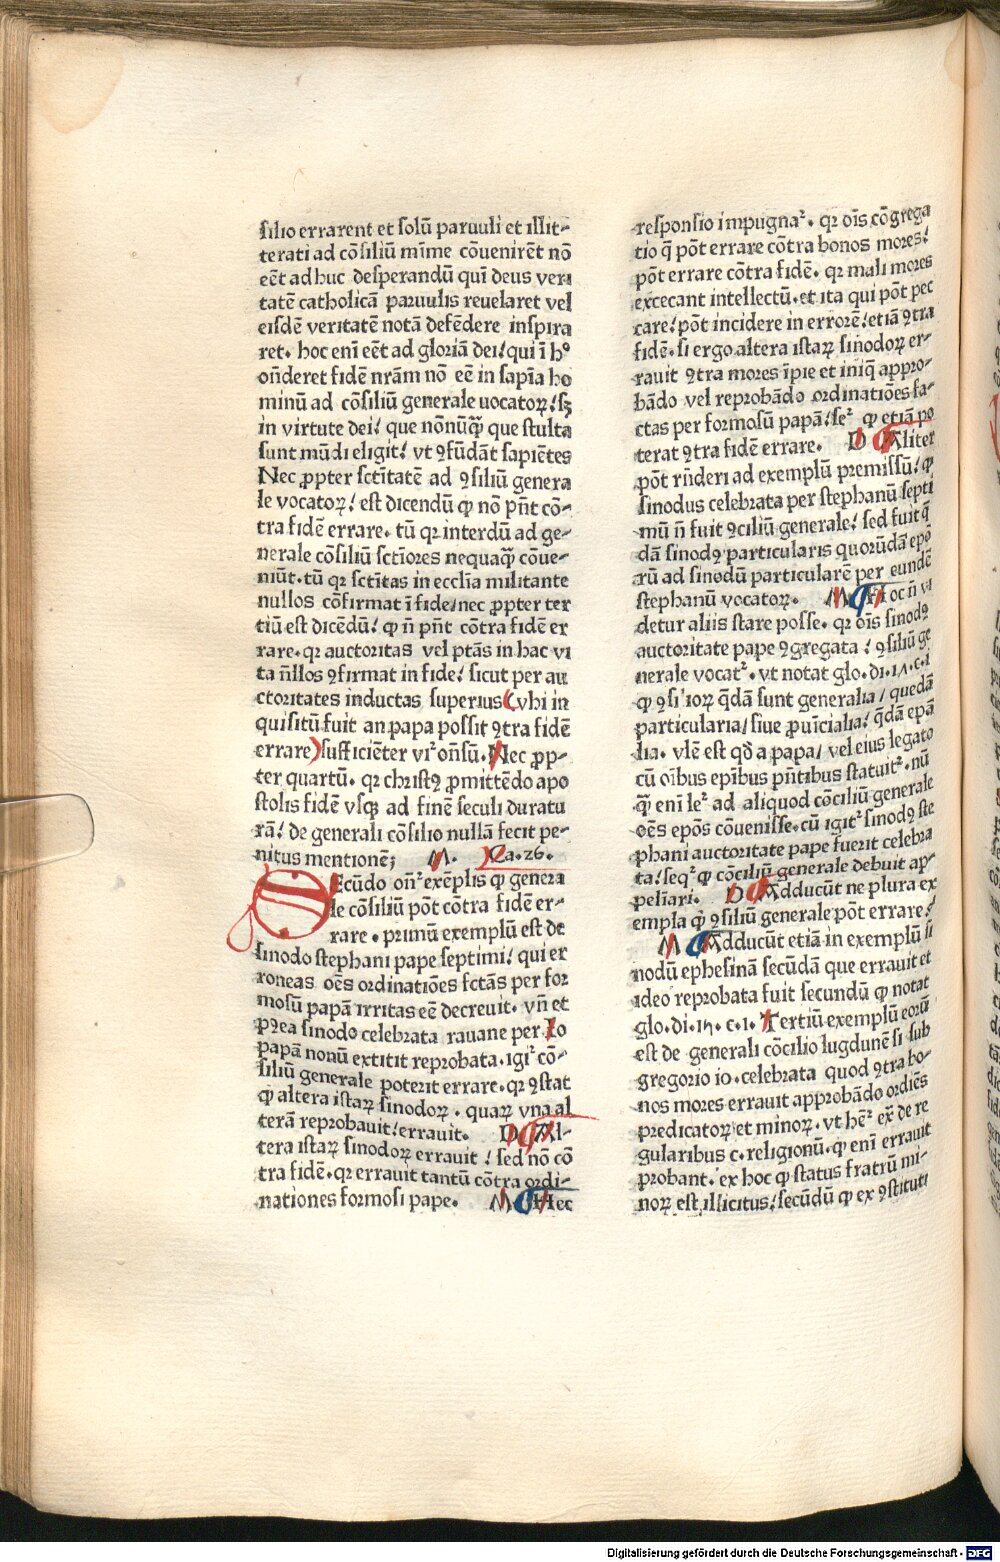 silio errarent et solū paruuli et illit-
terati ad cōsiliū mīme cōuenirēt nō
eēt ad huc desperandū qui deus veri
tatē catholicā paruulis reuelaret vel
eisdē veritatē notā defēdere inspira
ret. hoc enī eēt ad gloriā dei/ qui ī hꝰ
oñderet fidē nrām nō eē in sapīa ho
minū ad cōsiliū generale uocatoꝝ/ sꝫ
in virtute dei/ que nōnūqꝫ que stulta
sunt mūdi eligit/ vt ꝯfūdāt sapiētes
Nec ꝓpter sctītatē ad ꝯsiliū genera
le vocatoꝝ/ est dicendū ꝙ nō pñt cō-
tra fidē errare. tū qꝛ interdū ad ge-
nerale cōsiliū sctīores nequaqꝫ cōue-
niūt. tū qꝛ sctītas in ecclīa militante
nullos cōfirmat ī fide/ nec ꝓpter ter
tiū est dicēdū/ ꝙ ñ pñt cōtra fidē er
rare. qꝛ auctoritas vel ptās in hac vi
ta ñllos ꝯfirmat in fide/ sicut per au
ctoritates inductas superius (vbi in
quisitū fuit an papa possit ꝯtra fidē
errare) sufficiēter viꝛ oñsū. Nec ꝓp-
ter quartū. qꝛ christꝰ ꝓmittēdo apo
stolis fidē vsqꝫ ad finē seculi duratu
rā/ de generali cōsilio nullā fecit pe-
nitus mentionē; M. Ca. 26.
SEcūdo oñꝛ exēplis ꝙ genera
le cōsiliū pōt cōtra fidē er-
rare. primū exemplū est de
sinodo stephani pape septimi/ qui er
roneas oēs ordinatiōes fctās per for
mosū papā irritas eē decreuit. vñ et
pꝰea sinodo celebrata rauane per Io
papā nonū extitit reprobata. igiꝛ cō-
siliū generale poterit errare. qꝛ ꝯstat
ꝙ altera istaꝝ sinodoꝝ. quaꝝ vna al
terā reprobauit/ errauit. D Al-
tera istaꝝ sinodoꝝ errauit/ sed nō cō
tra fidē. qꝛ errauit tantū cōtra ordi-
nationes formosi pape. M Hec
responsio impugnaꝛ. qꝛ oīs cōgrega
tio q̄ pōt errare cōtra bonos mores/
pōt errare cōtra fidē. qꝛ mali mores
excecant intellectū. et ita qui pōt pec
care/ pōt incidere in errorē/ etiā ꝯtra
fidē. si ergo altera istaꝝ sinodoꝝ er-
rauit ꝯtra mores īpie et iniq̄ appro-
bādo vel reprobādo ordinatiōes fa-
ctas per formosū papā/ seꝛ ꝙ etiā po
terat ꝯtra fidē errare. D Aliter
pōt rñderi ad exemplū premissū/ ꝙ
sinodus celebrata per stephanū septi
mū ñ fuit ꝯciliū generale/ sed fuit q̄
dā sinodꝰ particularis quorūdā epō
rū ad sinodū particularē per eundē
stephanū vocatoꝝ. M Hoc ñ vi
detur aliis stare posse. qꝛ oīs sinodꝰ
auctoritate pape ꝯgregata/ ꝯsiliū ge
nerale vocatꝛ. vt notat glo. di. 17. c. 1
ꝙ ꝯsiꝉioꝝ q̄dā sunt generalia/ quedā
particularia/ siue ꝓuīcialia/ q̄dā epā
lia. vlē est qd̄ a papa/ vel eius legato
cū oībus epībus pñtibus statuitꝛ. nū
qꝫ enī leꝛ ad aliquod cōciliū generale
oēs epōs cōuenisse. cū igitꝛ sinodꝰ ste
phani auctoritate pape fuerit celebra
ta/ seqꝛ ꝙ cōciliū generale debuit ap-
pellari. D Adducūt ne plura ex
empla ꝙ ꝯsiliū generale pōt errare/
M Adducūt etiā in exemplū si
nodū ephesinā secūdā que errauit et
ideo reprobata fuit secundū ꝙ notat
glo. di. 15. c. 1. Tertiū exemplū eorū
est de generali cōcilio lugdunēsi sub
gregorio 10. celebrata quod ꝯtra bo-
nos mores errauit approbādo ordiēs
predicatoꝝ et minoꝝ. vt hēꝛ ex̄ de re
gularibus c. religionū. ꝙ enī errauit
probant. ex hoc ꝙ status fratrū mi-
noꝝ est illicitus/ secūdū ꝙ ex ꝯstituti
Digitalisierung gefördert durch die Deutsche Forschungsgemeinschaft - DFG